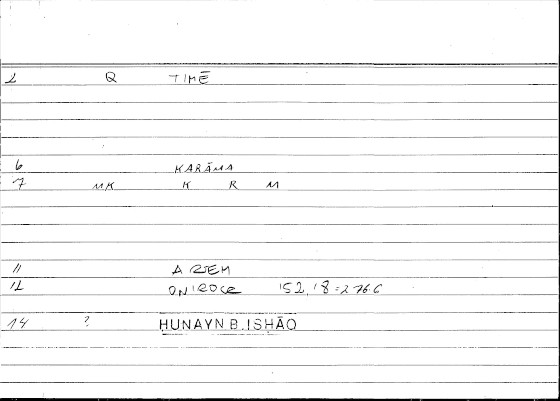 2 Q TIMĒ
6 KARĀMA
7 MK K R M
11 ARTEM
12 ONIROCR 152,18=276,6
14 ? ḤUNAYN B. ISḤĀQ